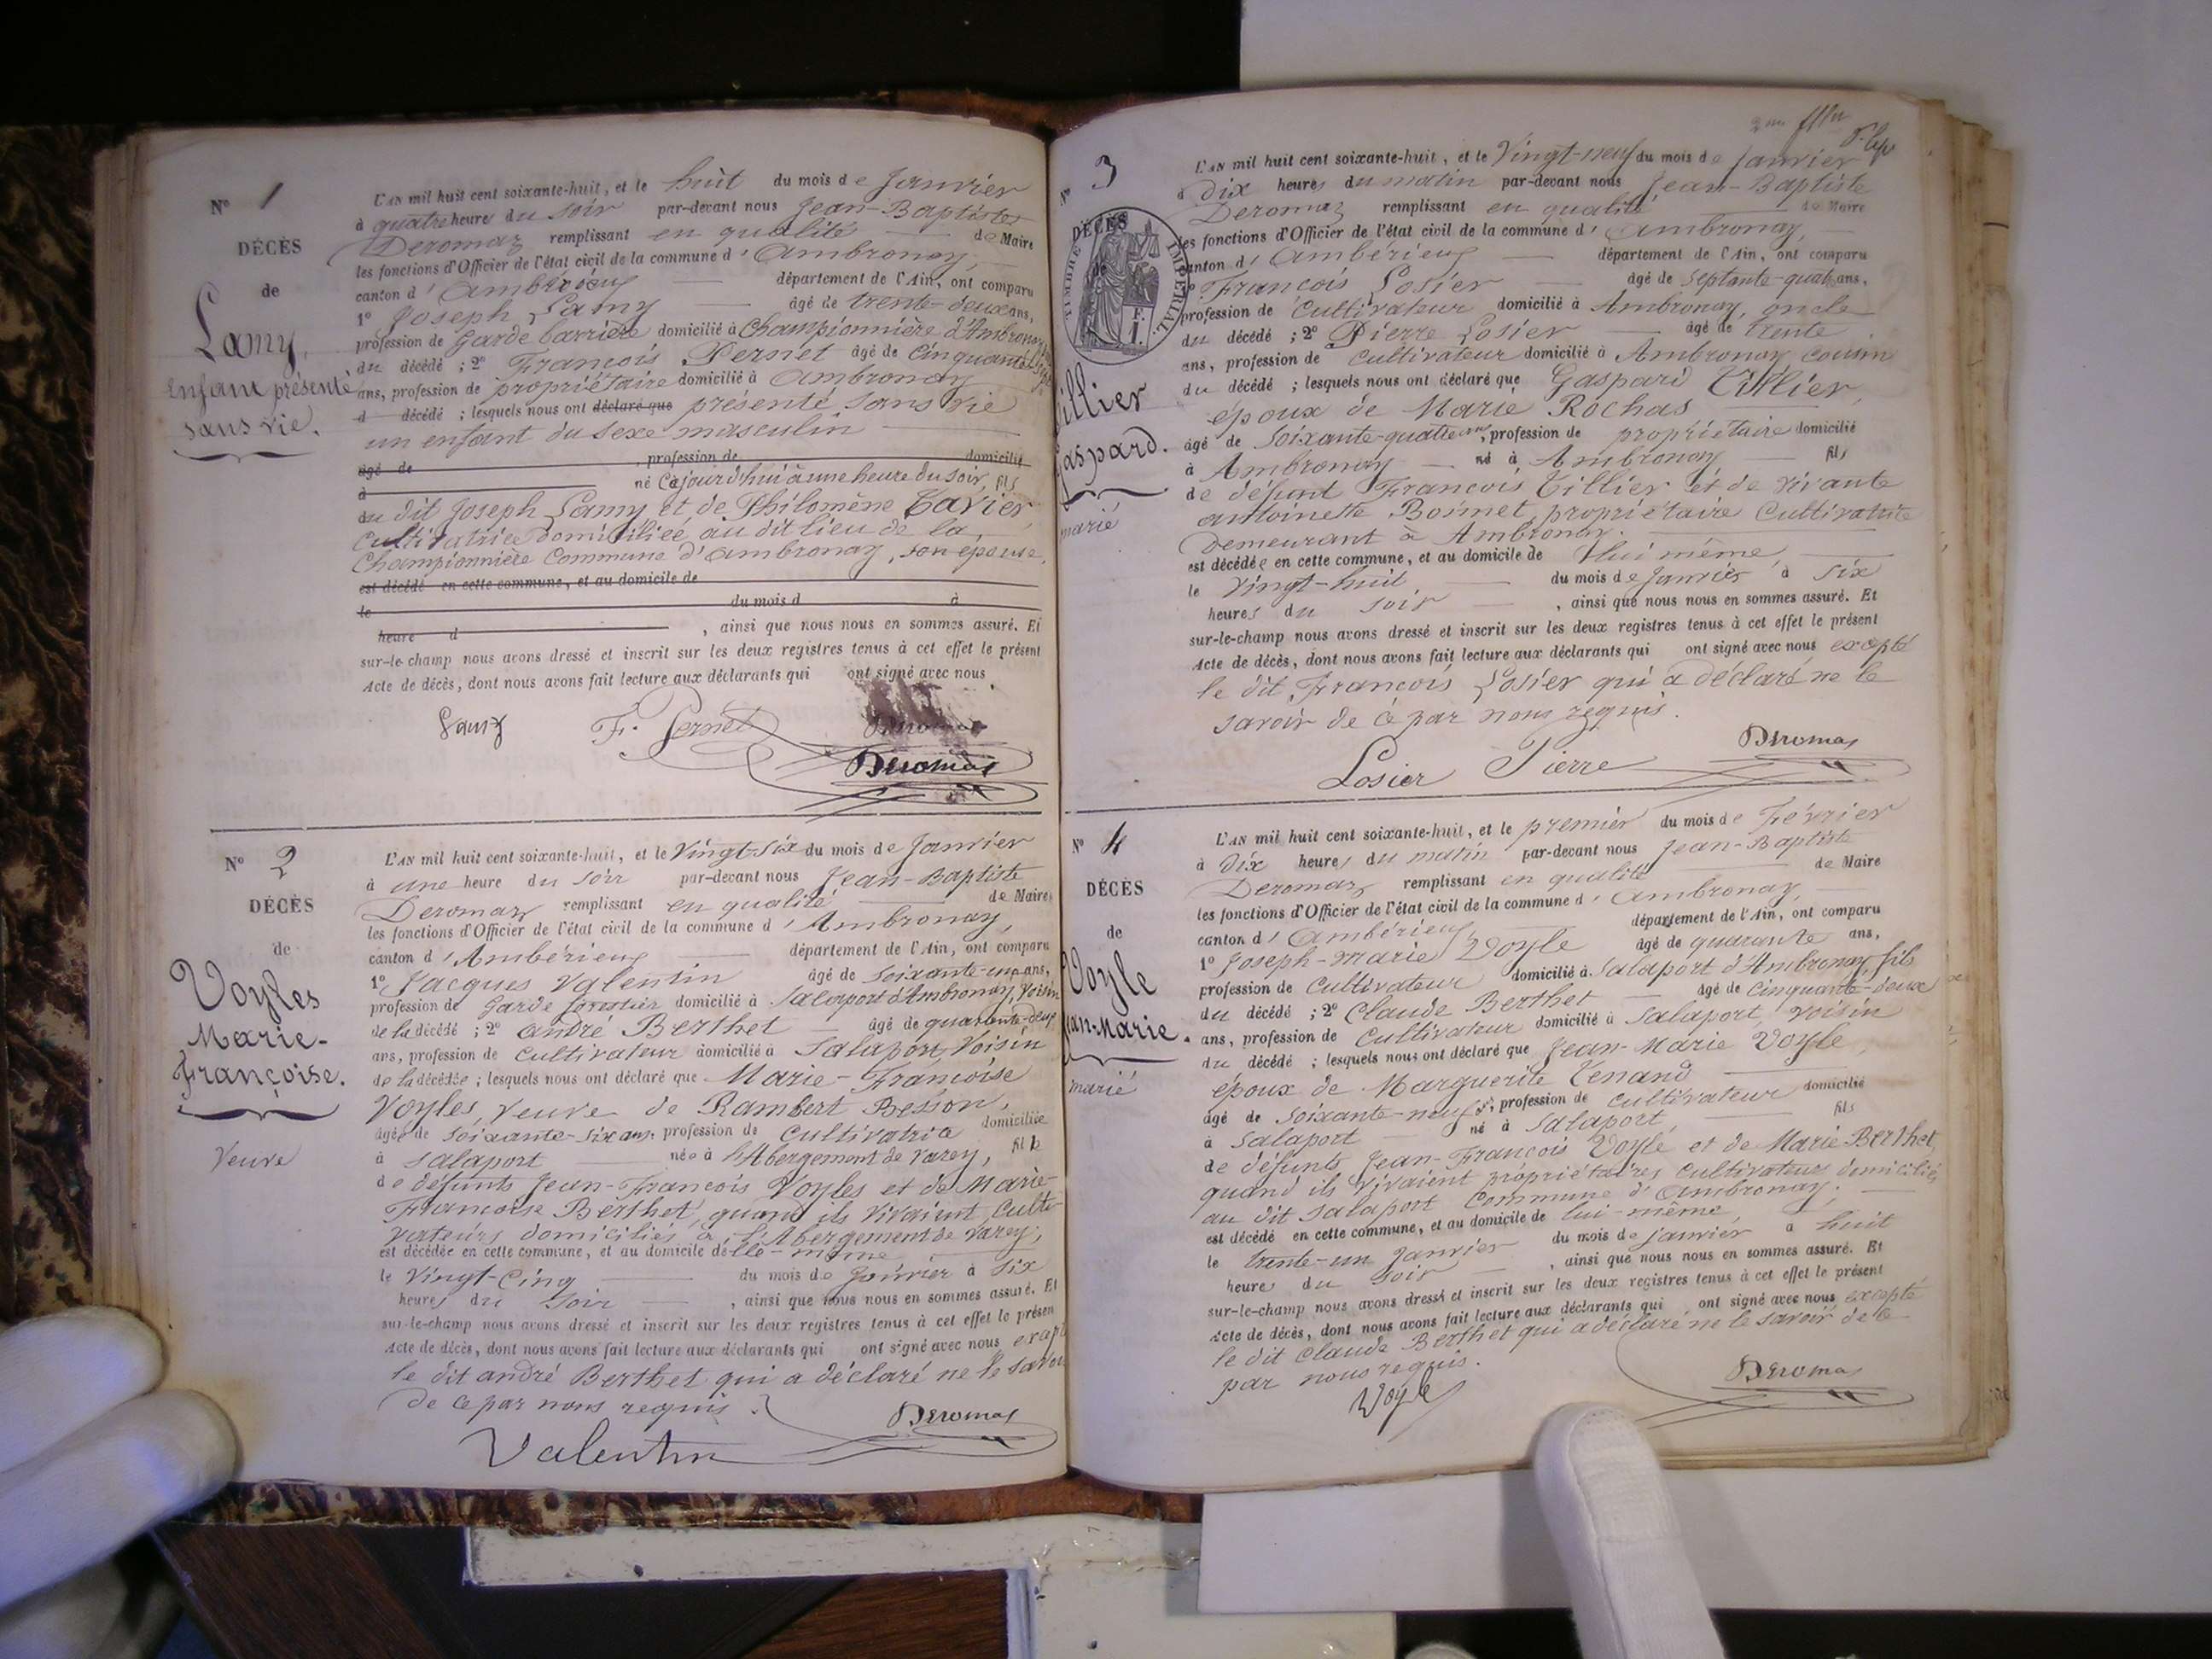 N° 1
DÉCÈS
de
Lamy,
Enfant présenté
sans vie.
L'AN mil huit cent soixante-huit, et le huit du mois de Janvier
à quatre heure du soir par-devant nous Jean-Baptiste
Deromaz remplissant en qualité de Maire
les fonctions d'Officier de l'état civil de la commune d'Ambronay,
canton d'Ambérieux département de l'Ain, ont comparu
1° Joseph Lamy âgé de trente-deux ans,
profession de Garde barrière domicilié à Championnière d'Ambronay
du décédé ; 2° François Pernet âgé de Cinquante
ans, profession de propriétaire domicilié à Ambronay
d décédé ; lesquels nous ont déclaré que présenté sans vie
un enfant du sexe masculin
âgé de , profession de domicilié
à né Cejourd'hui à une heure du soir, fils
du dit Joseph Lamy et de Philomène Tavier
Cultivatrice domiciliée au dit lieu de la
Championnière Commune d'Ambronay, son épouse.
est décédé en cette commune, et au domicile de
le du mois d à
heure d , ainsi que nous nous en sommes assuré. Et
sur-le-champ nous avons dressé et inscrit sur les deux registres tenus à cet effet le présent
Acte de décès, dont nous avons fait lecture aux déclarants qui ont signé avec nous
Lamy F. Pernet Deromaz
Deromaz
N° 2
DÉCÈS
de
Voyles
Marie-
Françoise.
Veuve
L'AN mil huit cent soixante-huit, et le Vingt six du mois de Janvier
à une heure du soir par-devant nous Jean-Baptiste
Deromaz remplissant en qualité de Maire
les fonctions d'Officier de l'état civil de la commune d'Ambronay,
canton d'Ambérieux département de l'Ain, ont comparu
1° Jacques Valentin âgé de soixante-un ans,
profession de Garde forestier domicilié à Salaport d'Ambronay, Voisin
de la décédé ; 2° André Berthet âgé de quarante-deux
ans, profession de Cultivateur domicilié à Salaport, Voisin
de la décédée ; lesquels nous ont déclaré que Marie-Françoise
Voyles, veuve de Rambert Besson,
âgée de soixante-six ans, profession de Cultivatrice domiciliée
à Salaport née à l'Abergement de Varey, fille
de défunts Jean-François Voyles et de Marie-
Françoise Berthet, quand ils vivaient, Culti-
vateurs domiciliés à l'Abergement de Varey,
est décédée en cette commune, et au domicile d'elle-même
le Vingt-Cinq du mois de Janvier à six
heures du soir , ainsi que nous nous en sommes assuré. Et
sur-le-champ nous avons dressé et inscrit sur les deux registres tenus à cet effet le présent
Acte de décès, dont nous avons fait lecture aux déclarants qui ont signé avec nous excepté
le dit André Berthet qui a déclaré ne le savoir
de ce par nous requis.
Deromaz
Valentin
N° 3
DÉCÈS
TIMBRE IMPÉRIAL
F.
1.
Tillier
Gaspard.
marié
L'AN mil huit cent soixante-huit, et le Vingt-neuf du mois de Janvier
à Dix heures du matin par-devant nous Jean-Baptiste
Deromaz remplissant en qualité de Maire
les fonctions d'Officier de l'état civil de la commune d'Ambronay,
canton d'Ambérieux département de l'Ain, ont comparu
1° François Losier âgé de septante-quatre ans,
profession de Cultivateur domicilié à Ambronay, oncle
du décédé ; 2° Pierre Losier âgé de trente
ans, profession de Cultivateur domicilié à Ambronay cousin
du décédé ; lesquels nous ont déclaré que Gaspard Tillier,
époux de Marie Rochas
âgé de soixante-quatre ans, profession de propriétaire domicilié
à Ambronay né à Ambronay fils
de défunt François Tillier et de vivante
Antoinette Bonnet, propriétaire Cultivatrice
Demeurant à Ambronay.
est décédée en cette commune, et au domicile de lui même,
le Vingt-huit du mois de Janvier à six
heures du soir , ainsi que nous nous en sommes assuré. Et
sur-le-champ nous avons dressé et inscrit sur les deux registres tenus à cet effet le présent
Acte de décès, dont nous avons fait lecture aux déclarants qui ont signé avec nous excepté
le dit François Losier qui a déclaré ne le
savoir de ce par nous requis.
Deromaz
Losier Pierre
N° 4
DÉCÈS
de
Voyle
Jean-Marie.
marié
L'AN mil huit cent soixante-huit, et le premier du mois de Février
à Dix heures du matin par-devant nous Jean-Baptiste
Deromaz remplissant en qualité de Maire
les fonctions d'Officier de l'état civil de la commune d'Ambronay,
canton d'Ambérieux, département de l'Ain, ont comparu
1° Joseph-Marie Voyle âgé de quarante ans,
profession de Cultivateur domicilié à Salaport d'Ambronay, fils
du décédé ; 2° Claude Berthet âgé de Cinquante-deux
ans, profession de Cultivateur domicilié à Salaport, Voisin
du décédé ; lesquels nous ont déclaré que Jean-Marie Voyle,
époux de Marguerite Tenand
âgé de soixante-neuf ans, profession de Cultivateur domicilié
à Salaport né à Salaport, fils
de défunts Jean-François Voyle et de Marie Berthet,
quand ils vivaient propriétaires Cultivateurs domiciliés
au dit Salaport Commune d'Ambronay.
est décédé en cette commune, et au domicile de lui-même,
le trente-un Janvier du mois de Janvier à huit
heures du soir , ainsi que nous nous en sommes assuré. Et
sur-le-champ nous avons dressé et inscrit sur les deux registres tenus à cet effet le présent
Acte de décès, dont nous avons fait lecture aux déclarants qui ont signé avec nous excepté
le dit Claude Berthet qui a déclaré ne le savoir de ce
par nous requis.
Deromaz
Voyle